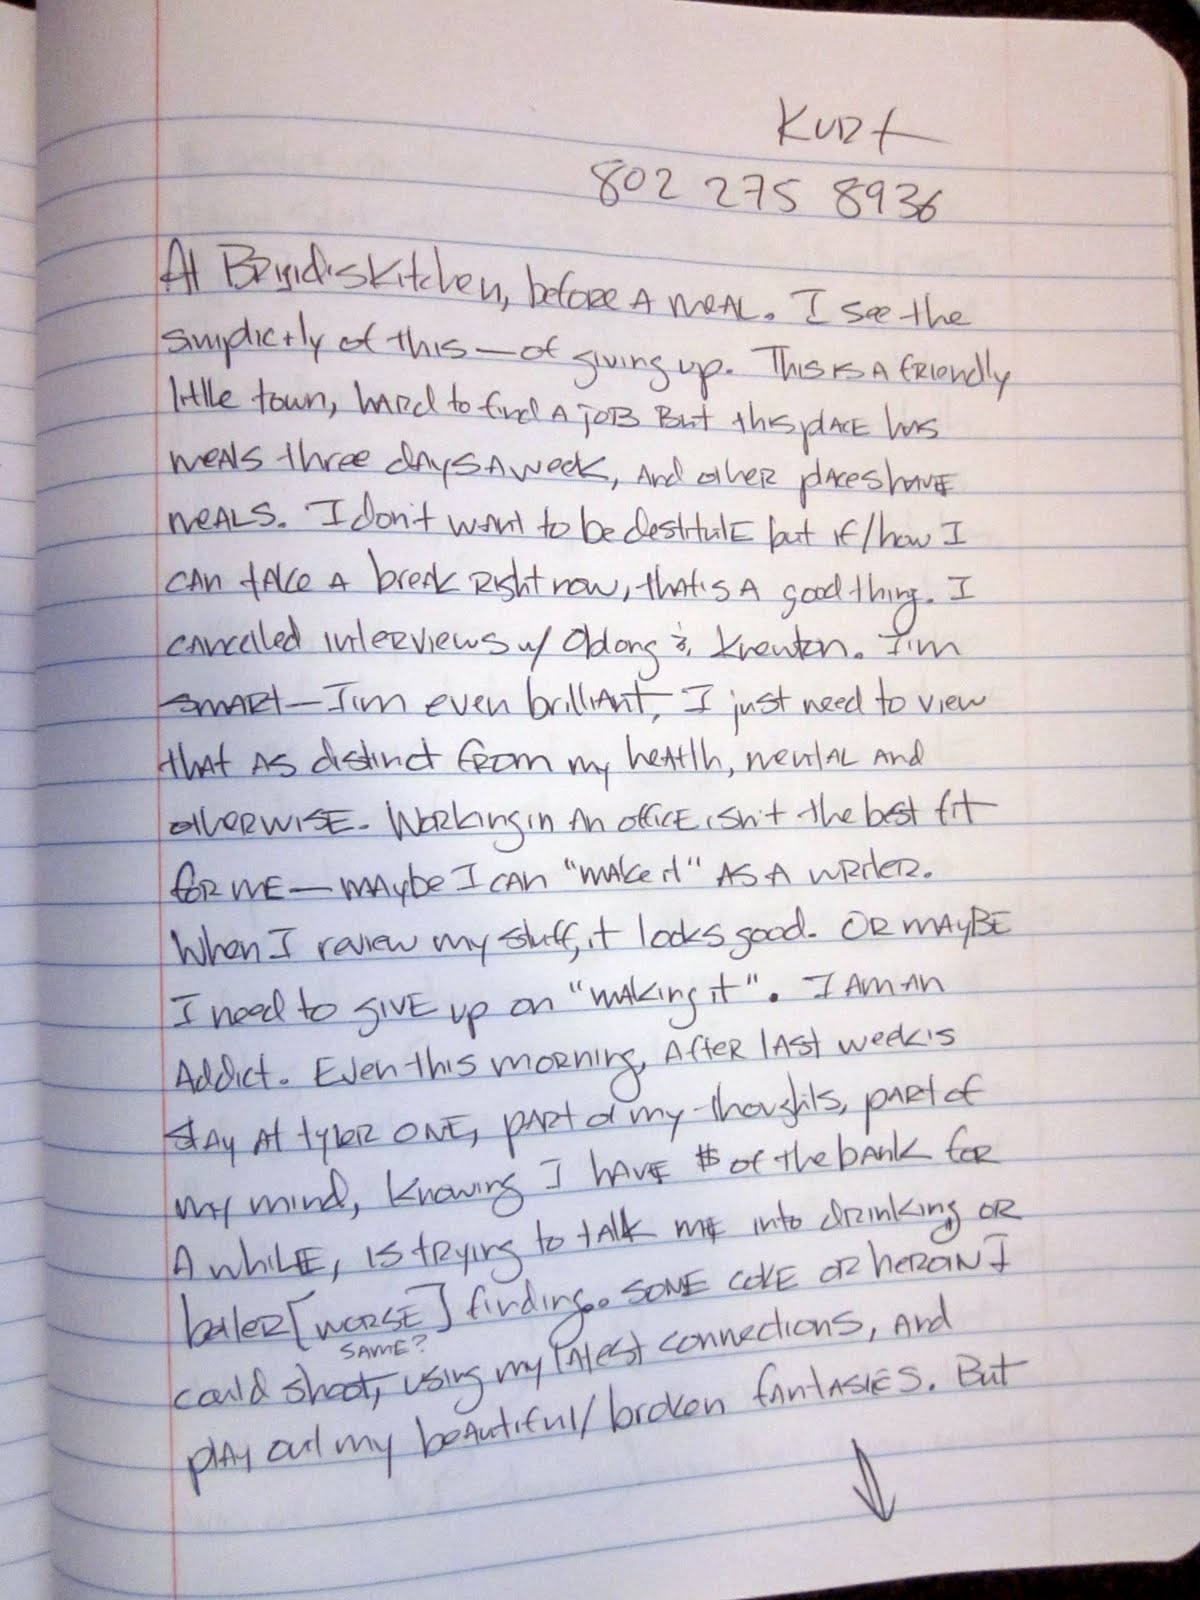 Kurt
802 275 8936
At Brigid's Kitchen, before A meAL. I see the
simplictly of this—of giving up. This is A friendly
little town, hard to find A JOB But this plACE has
meAls three days A week, And other places have
meALS. I don't want to be destitutE but if/how I
cAn take A break Right now, that's A good thing. I
cancelled interviews w/ Oblong & Kreuton. I'm
smARt—I'm even brilliAnt, I just need to view
that AS distinct from my health, mental And
otherwisE. Working in An officE isn't the best fit
for mE—maybe I can "make it" AS A writer.
When I review my stuff, it looks good. OR mAyBE
I need to gIVE up on "making it". I Am An
Addict. Even this morning, After lAst week's
stAy At tyler ONE, part of my thoughts, part of
my mind, Knowing I hAvE $ of the bank for
A whiLE, is trying to talk mE into drinking OR
better [worsE] finding.. SOME coke OR heroin I
SAME?
could shoot, using my latest connections, And
plAy out my beAutiful/broken fantasies. But
↓